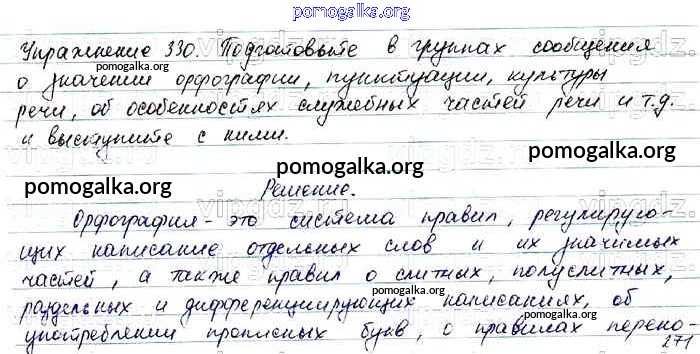 pomogalka.org
Упражнение 330. Подготовьте в группах сообщения
о значении орфографии, пунктуации, культуры
pomogalka.org
речи, об особенностях служебных частей речи и т.д.
и выступите с ними.
pomogalka.org
pomogalka.org
Решение.
pomogalka.org
Орфография - это система правил, регулирую-
щих написание отдельных слов и их значимых
pomogalka.org
частей, а также правил о слитных, полуслитных,
pomogalka.org
раздельных и дифференцирующих написаниях, об
употреблении прописных букв, о правилах перено-
pomogalka.org
271